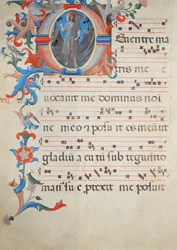 De ventre ma
tris me
uocauit me dominus noi
ne meo & posuit os meum ut
gladiu acutu sub tegumto
man' sue protexit me posuit